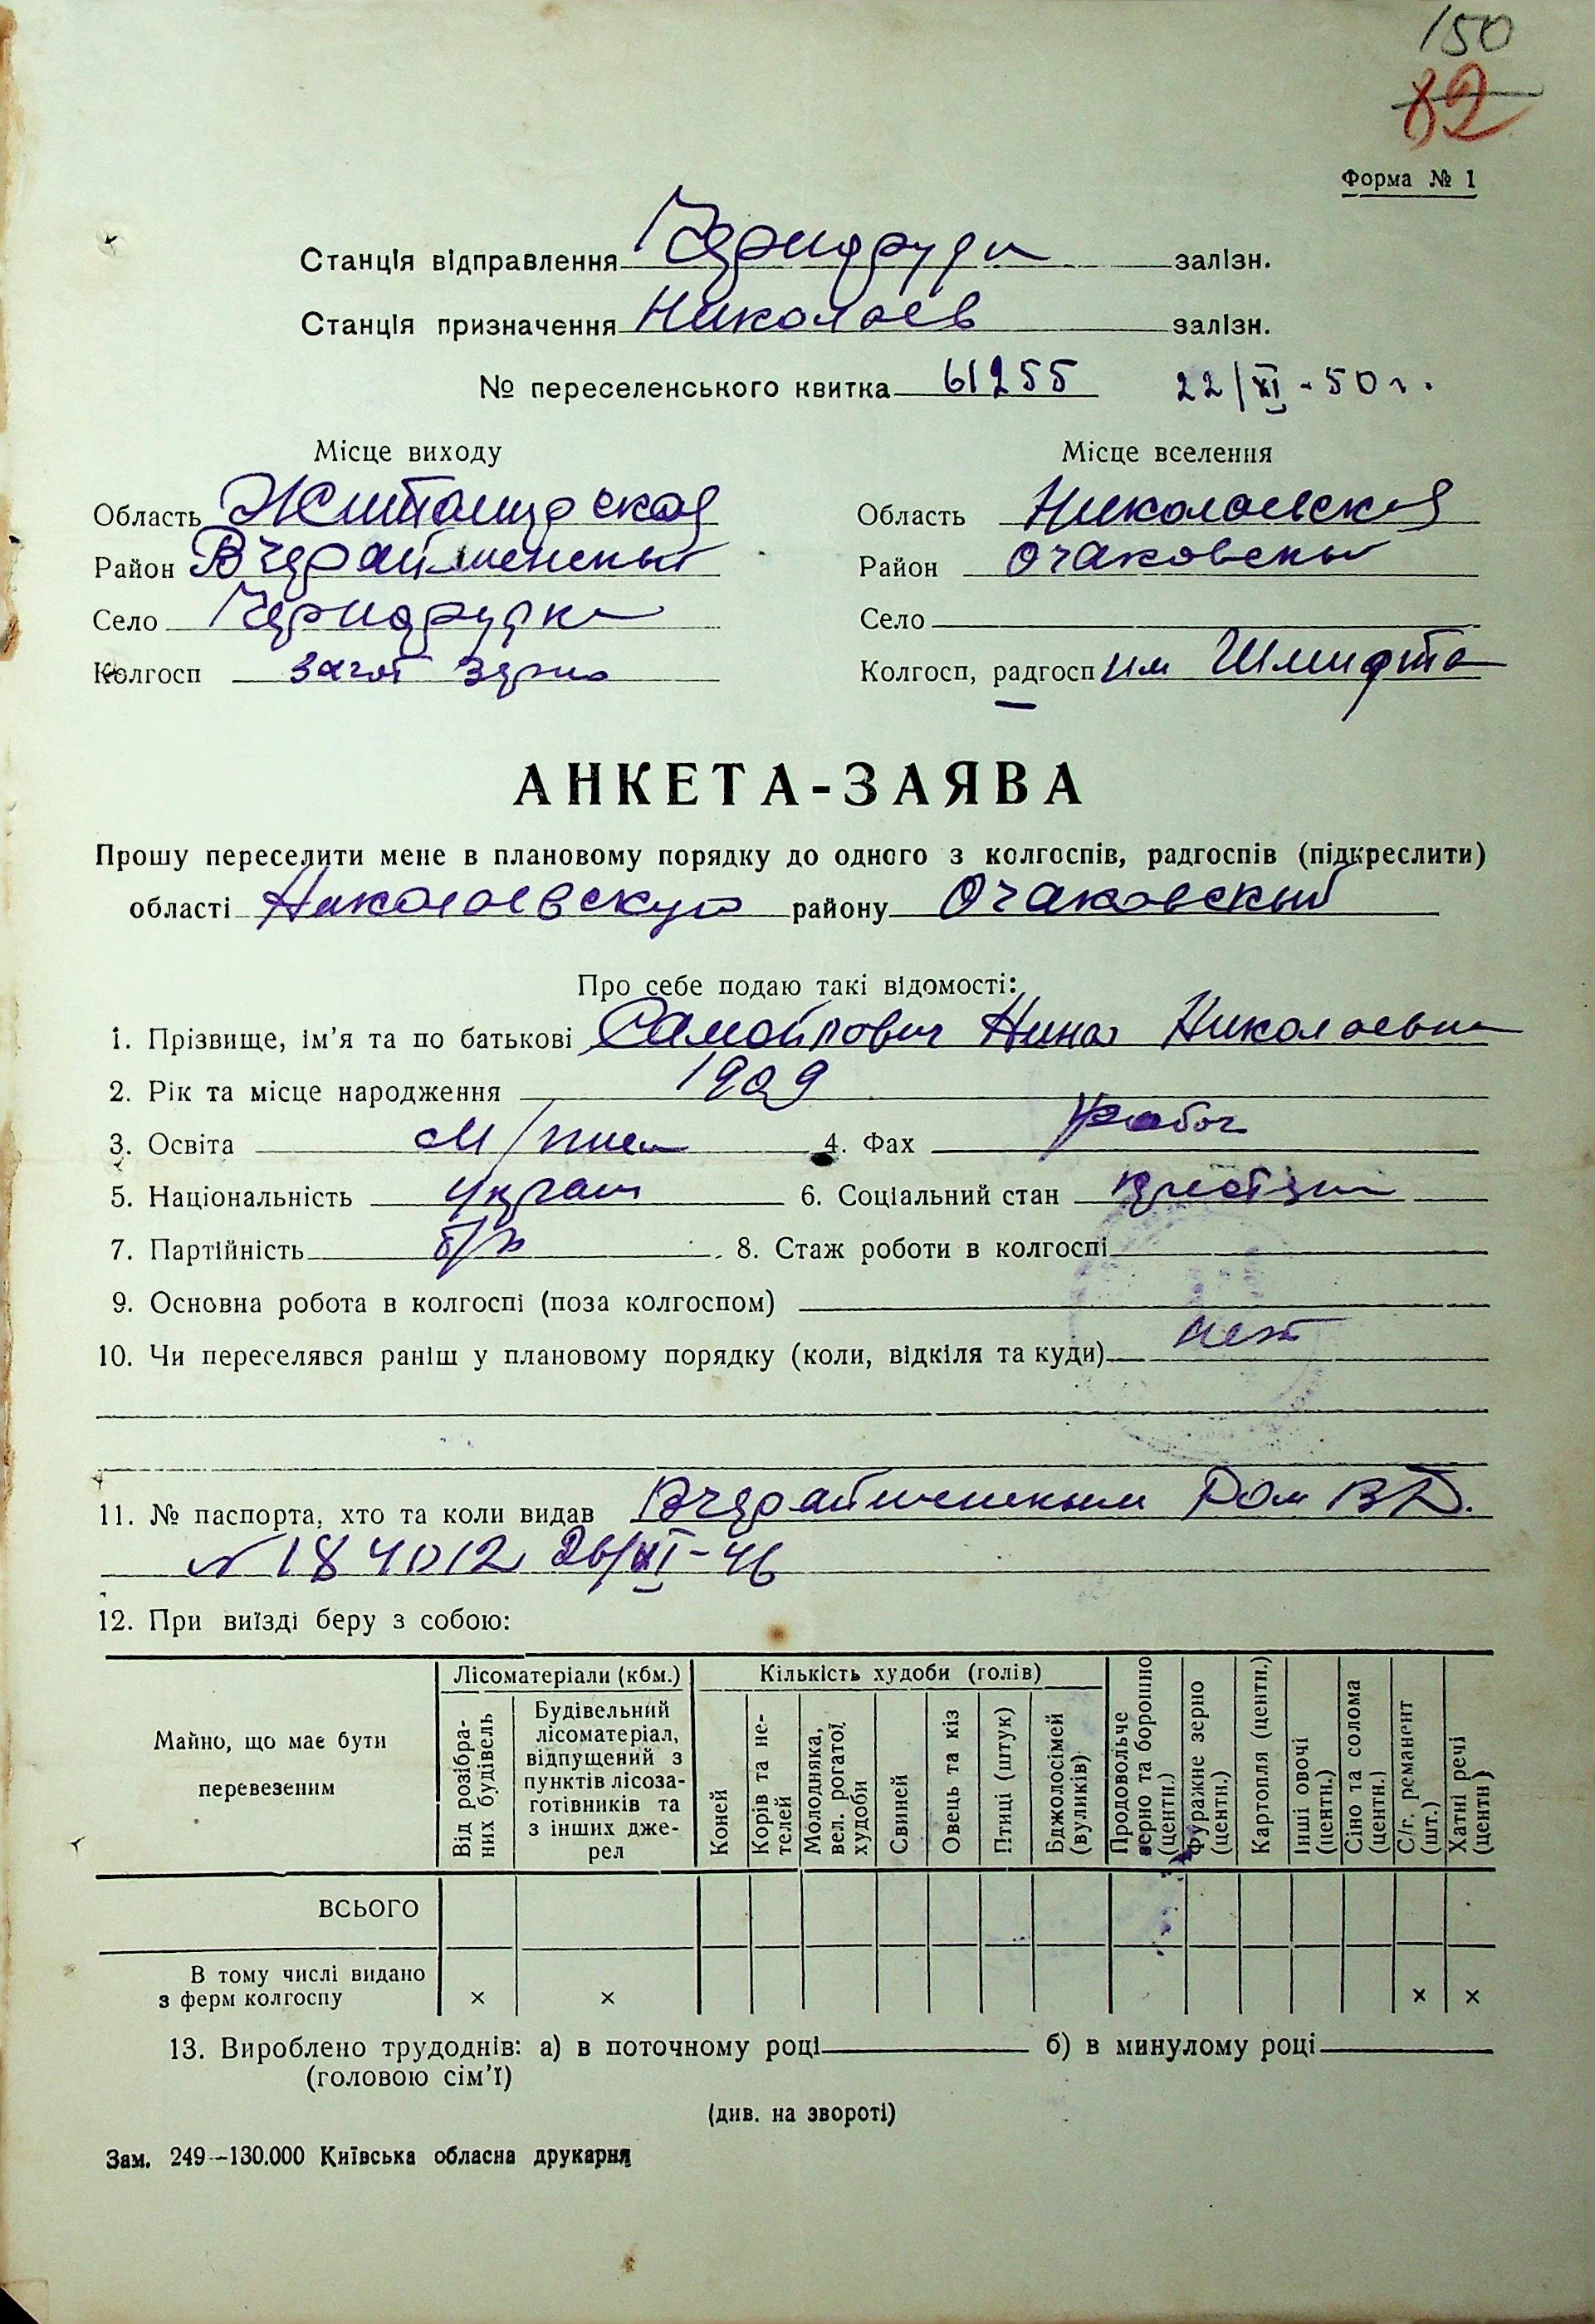 150
82
Форма № 1
Станція відправлення Чернорудка залізн.
Станція призначення Николаев залізн.
№ переселенського квитка 61255 22/XI-50 г.
Місце виходу Місце вселення
Область Житомирская Область Николаевская
Район Вчерайшенский Район Очаковский
Село Чернорудка Село
Колгосп Загот зерно Колгосп, радгосп им Шмидта
АНКЕТА-ЗАЯВА
Прошу переселити мене в плановому порядку до одного з колгоспів, радгоспів (підкреслити)
області Николаевскую району Очаковский
Про себе подаю такі відомості:
1. Прізвище, ім'я та по батькові Самойлович Нина Николаевна
2. Рік та місце народження 1909
3. Освіта м/гр 4. Фах рабоч
5. Національність украин 6. Соціальний стан крестьян
7. Партійність б/п 8. Стаж роботи в колгоспі
9. Основна робота в колгоспі (поза колгоспом)
10. Чи переселявся раніш у плановому порядку (коли, відкіля та куди) нет
11. № паспорта, хто та коли видав Вчерайшенским РОМВД.
№ 184012 26/XI-46
12. При виїзді беру з собою:
Майно, що має бути перевезеним
Лісоматеріали (кбм.)
Від розібраних будівель
Будівельний лісоматеріал, відпущений з пунктів лісозаготівників та з інших джерел
Кількість худоби (голів)
Коней
Корів та нетелей
Молодняка, вел. рогатої худоби
Свиней
Овець та кіз
Птиці (штук)
Бджолосімей (вуликів)
Продовольче зерно та борошно (центн.)
Фуражне зерно (центн.)
Картопля (центн.)
Інші овочі (центн.)
Сіно та солома (центн.)
С/г. реманент (шт.)
Хатні речі (центн)
ВСЬОГО
В тому числі видано
з ферм колгоспу × × × ×
13. Вироблено трудоднів: а) в поточному році б) в минулому році
(головою сім'ї)
(див. на звороті)
Зам. 249—130.000 Київська обласна друкарня